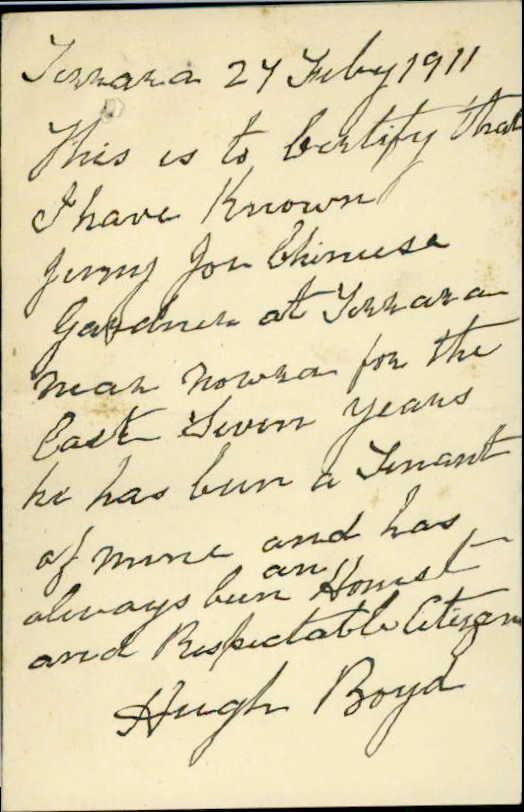 Terrara 27 Feby 1911
This is to Certify that
I have Known
Jimmy Jon Chinese
Gardner at Terrara
near Nowra for the
last Seven years
he has been a Tenant
of mine and has
an
always been Honest
and Respectable Citizen
Hugh Boyd